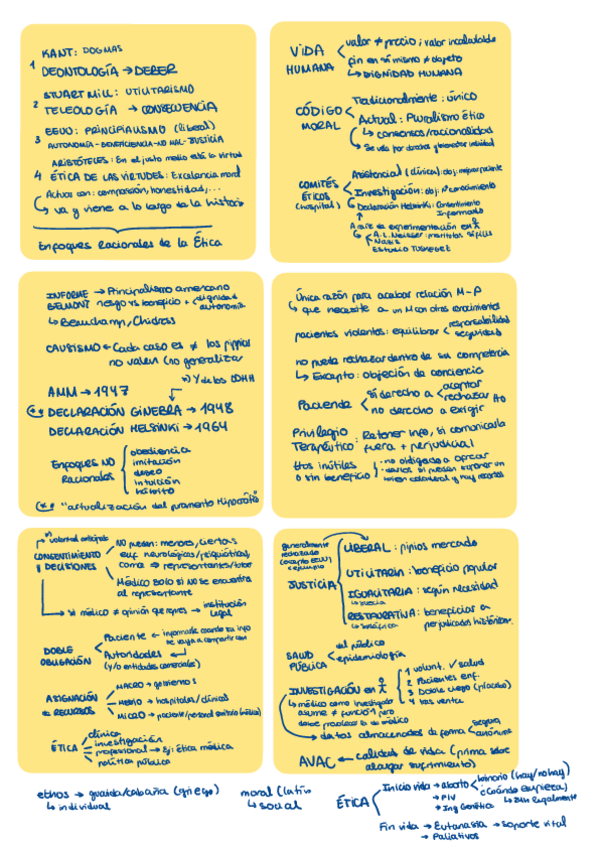 KANT: DOGMAS
1 DEONTOLOGÍA → DEBER
STUART MILL: UTILITARISMO
2 TELEOLOGÍA → CONSECUENCIA
EEUU: PRINCIPIALISMO (liberal)
3 AUTONOMÍA - BENEFICIENCIA - NO MAL - JUSTICIA
ARISTÓTELES: En el justo medio está la virtud
4 ÉTICA DE LAS VIRTUDES: Excelencia moral
Actuar con: compasión, honestidad,...
↳ va y viene a lo largo de la historia
Enfoques Racionales de la Ética
VIDA HUMANA
valor ≠ precio; valor incalculable
fin en sí mismo ≠ objeto
↳ DIGNIDAD HUMANA
CÓDIGO MORAL
Tradicionalmente: único
Actual: Pluralismo ético
↳ consensos/racionalidad
↳ Se vela por derechos y bienestar individual
COMITÉS ÉTICOS (hospital)
Asistencial (clínica): obj: mejorar paciente
Investigación: obj: ↑ conocimiento
↳ Declaración Helsinki: Consentimiento Informado
A raíz de experimentación en
↳ A.L. Neisser: prostitutas sífilis
NAZIS
ESTUDIO TUSKEGEE
INFORME BELMONT → Principialismo americano
riesgo vs beneficio + dignidad autonomía
↳ Beauchamp, Childress
CASUISMO ← Cada caso es ≠ los ppios
no valen (no generalizar
AMM → 1947
*) Y de los DDHH
(** DECLARACIÓN GINEBRA → 1948
DECLARACIÓN HELSINKI → 1964
Enfoques NO Racionales
obediencia
imitación
deseo
intuición
hábito
(** "actualización del juramento Hipocrático"
Única razón para acabar relación M-P
↳ que necesite a un M con otros conocimientos
pacientes violentos: equilibrar
responsabilidad
seguridad
no puede rechazar dentro de su competencia
↳ Excepto: objeción de conciencia
Paciente
sí derecho a
aceptar
rechazar
tto
no derecho a exigir
Privilegio Terapéutico: Retener info, si comunicarla
fuera + perjudicial
ttos inútiles o sin beneficio
- no obligado a ofrecer
*) voluntad anticipada
CONSENTIMIENTO Y DECISIONES
NO pueden: menores, ciertas
enf. neurológicas/psiquiátricas,
coma ⇒ representantes/tutor
Médico solo si NO se encuentra
al representante
↳ si médico ≠ opinión que repres → institución legal
DOBLE OBLIGACIÓN
Paciente ← informarle cuando su info se vaya a compartir con
Autoridades
(y/o entidades comerciales)
ASIGNACIÓN DE RECURSOS
MACRO → gobiernos
MESO → hospitales/clínicas
MICRO → paciente/personal sanitario (médico)
ÉTICA
clínica
investigación
profesional → Ej: ética médica
política pública
generalmente rechazado (excepto EEUU)
JUSTICIA
LIBERAL: ppios mercado
UTILITARIA: beneficio popular
IGUALITARIA: según necesidad
↳ Suecia
RESTAURATIVA: beneficiar a
perjudicados históricam.
↳ Sudáfrica
SALUD PÚBLICA
del público
epidemiología
INVESTIGACIÓN en
↳ médico como investigador
asume ≠ función pero
debe prevalecer la de médico
1 volunt. ✓ salud
2 Pacientes enf.
3 Doble ciego (placebo)
4 tras venta
↳ datos almacenados de forma
segura
anónima
AVAC ← calidad de vida (prima sobre
alargar sufrimiento)
ethos → guarida/cabaña (griego)
↳ individual
moral (latín
↳ social
ÉTICA
Inicio vida → aborto
binario (hay/no hay)
¿Cuándo empieza?
→ FIV
→ Ing Genética
Fin vida → Eutanasia → soporte vital
→ Paliativos